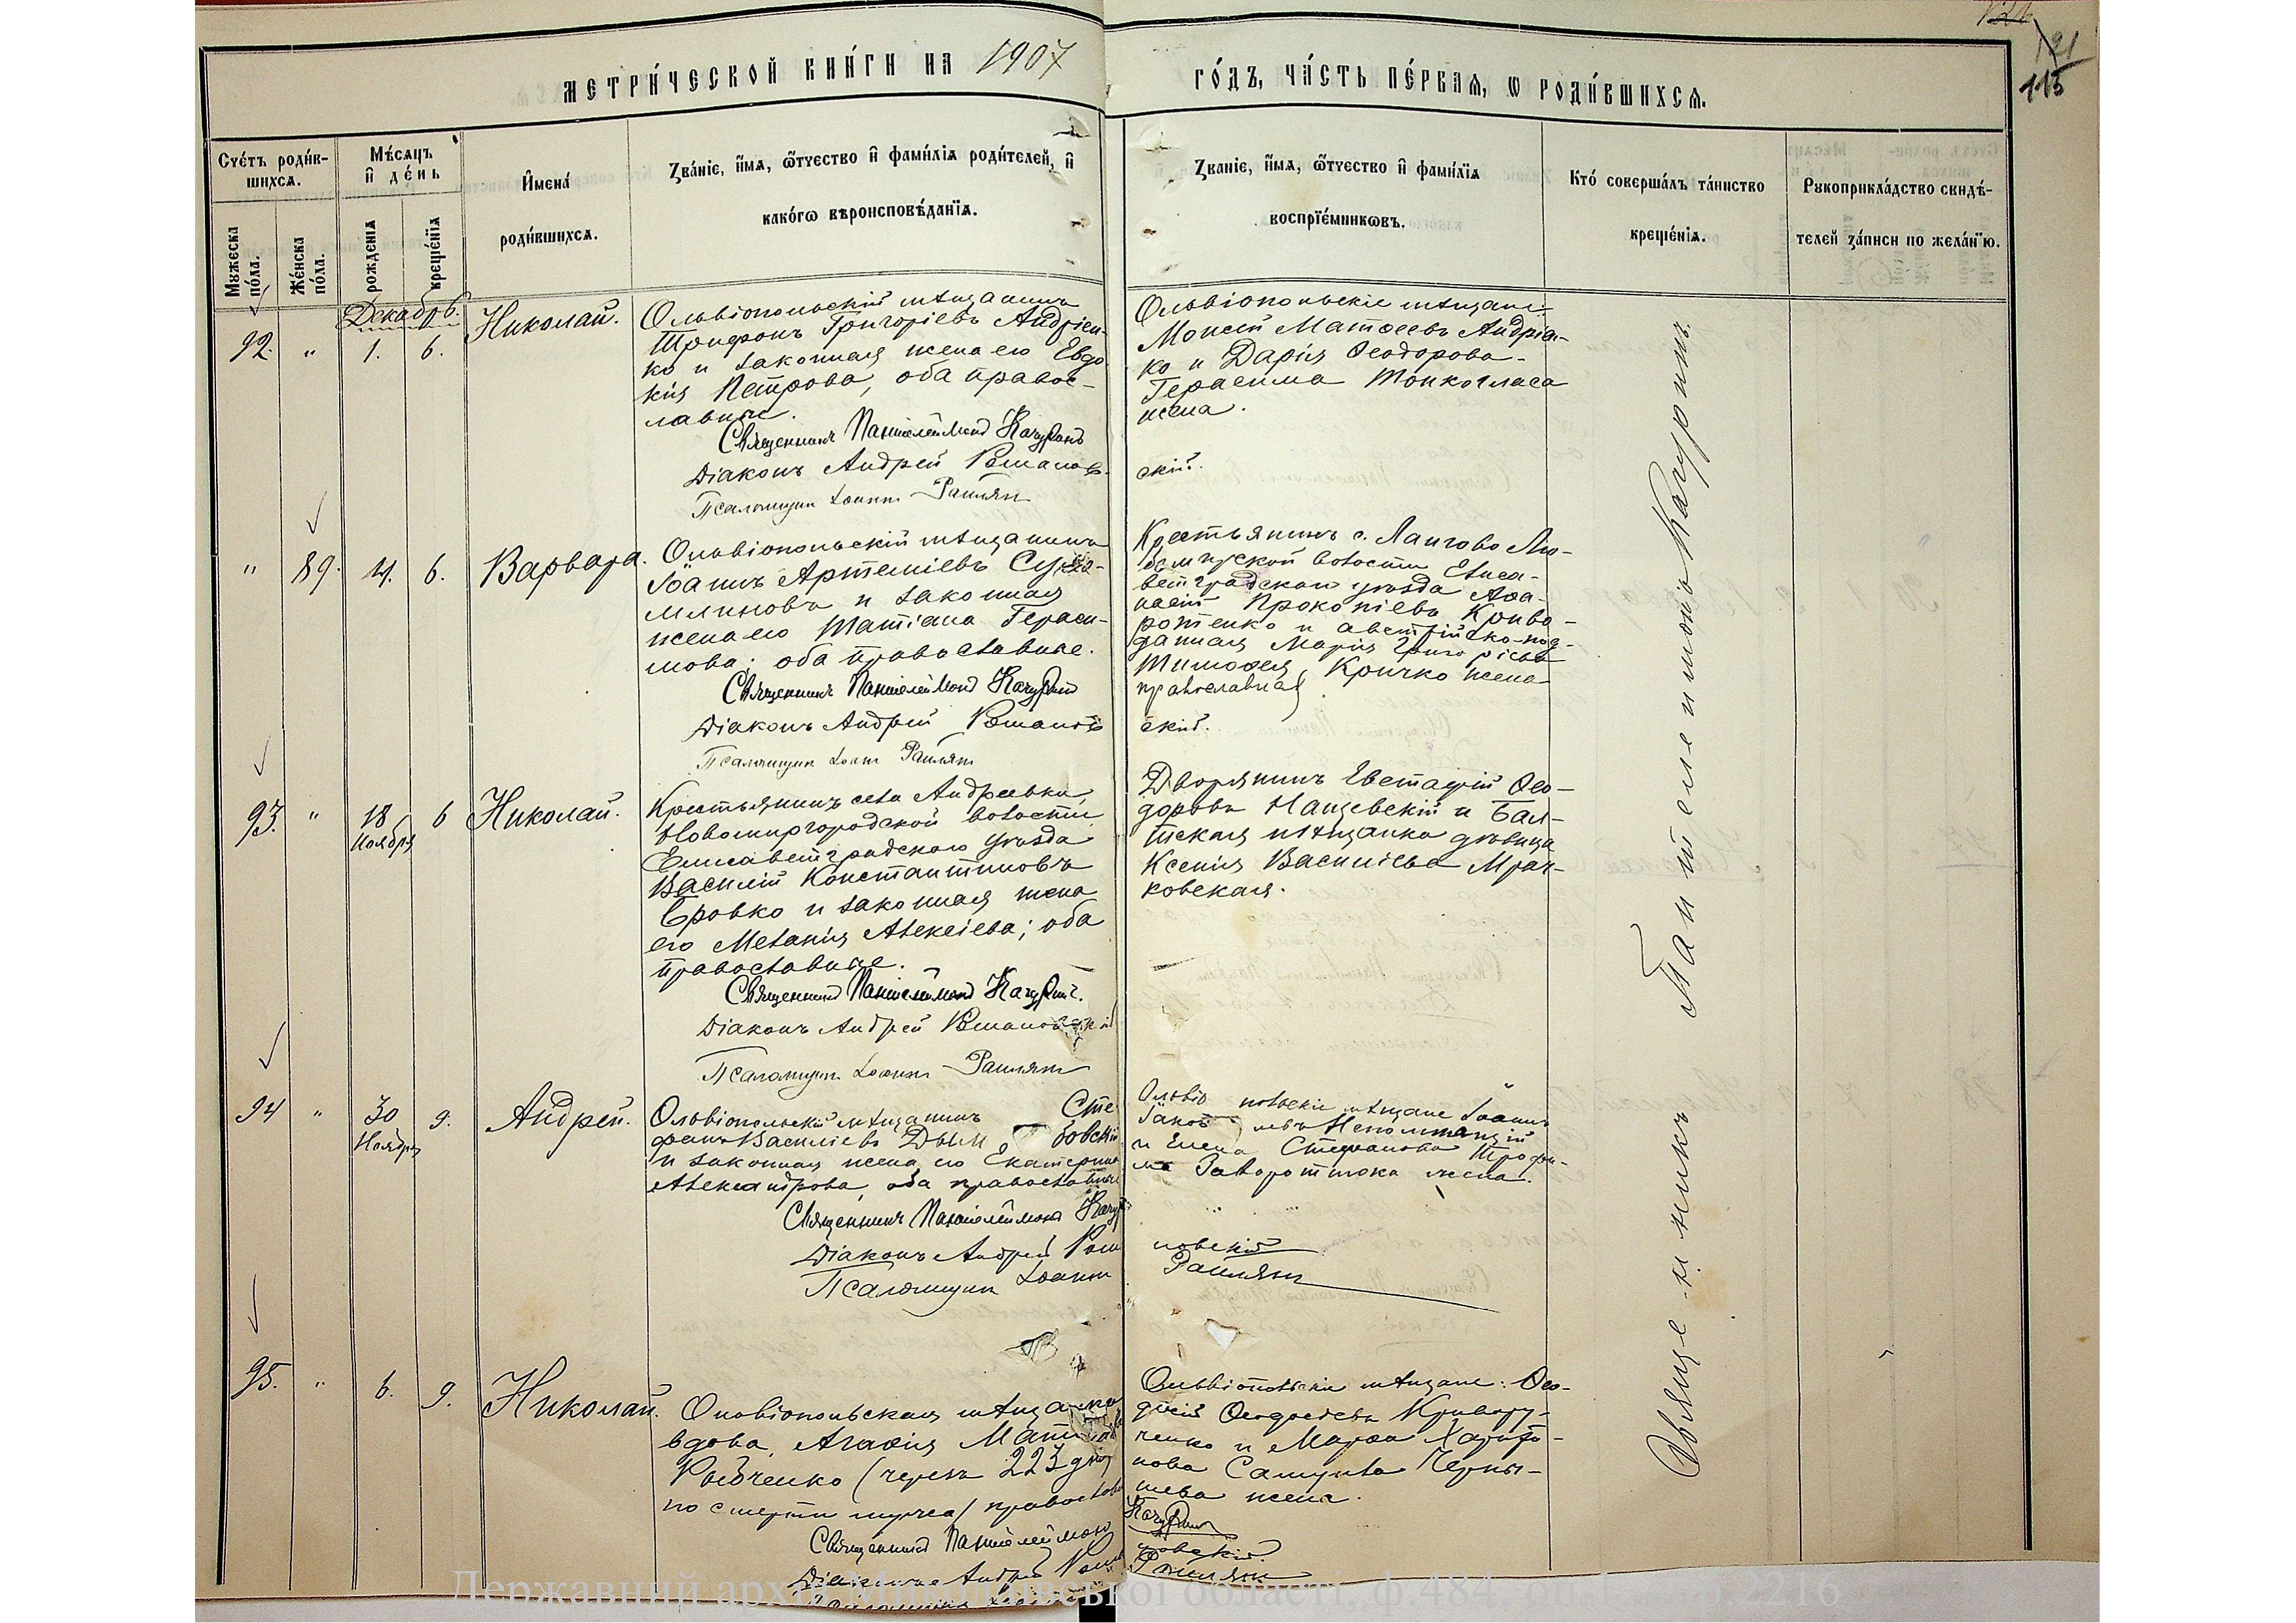 МЕТРИ́ЧЕСКОЙ КНИ́ГИ НА 1907 ГО́ДЪ, ЧА́СТЬ ПЕ́РВАЯ, Ѡ РОДИ́ВШИХСЯ.
121
115
Счетъ роди́вшихся.
Му́жеска по́ла.
Же́нска по́ла.
Мѣ́сяцъ и҆ де́нь
рожденія
креще́нїѧ
И҆мена́ роди́вшихсѧ.
Зва́ніе, и҆́мѧ, ѻ҆́тчество и҆ фами́лїѧ роди́телей, и҆
како́гѡ вѣроисповѣ́данїѧ.
Зва́ніе, и҆́мѧ, ѻ҆́тчество и҆ фами́лїѧ
воспрїе́мниковъ.
Кто́ соверша́лъ та́инство
креще́нїѧ.
Рꙋкоприкла́дство свидѣ́-
телей за́писи по жела́нїю.
Декабрь.
92. " 1. 6. Николай.
Ольвіопольскій мѣщанинъ
Трифонъ Григоріевъ Андріен-
ко и законная жена его Евдо
кія Петрова, оба правос-
лавные.
Священникъ Пантелеймонъ Качуринъ
Діаконъ Андрей Романов-
скій.
Псаломщик Іоанн Раилян
Ольвіопольскіе мѣщане:
Моисей Матѳеевъ Андріен-
ко и Дарія Ѳеодорова
Герасима Тонкогласа
жена.
" 89. 4. 6. Варвара.
Ольвіопольскій мѣщанинъ
Іоаннъ Артеміевъ Сухо-
млиновъ и законная
жена его Татіана Гераси-
мова; оба православные.
Священникъ Пантелеймонъ Качуринъ
Діаконъ Андрей Романов
скій.
Псаломщик Іоанн Раилян
Крестьянинъ с.
волости Елиса-
ветградскаго уѣзда Аѳа-
насій Прокопіевъ Криво-
ротенко и австрійско-под-
данная Марія Григоріева
Тимоѳея Кричко жена
православная
93. " 18 Ноября 6 Николай.
Крестьянинъ села Андреевки,
Новомиргородской волости
Елисаветградскаго уѣзда
Василій Константиновъ
Бровко и законная жена
его Меланія Алексіева; оба
православные.
Священникъ Пантелеймонъ Качуринъ.
Діаконъ Андрей Романовскій
Псаломщик Іоанн Раилян
Дворянинъ Евстафій Ѳео-
доровъ Нащевскій и Бал-
тская мѣщанка дѣвица
Ксенія Василіева Мрач-
ковская.
94 " 30 Ноября 9. Андрей.
Ольвіопольскій мѣщанинъ Сте
фанъ Василіевъ
и законная жена его Екатерина
Александрова, оба православные
Священникъ Пантелеймонъ Качу
Діаконъ Андрей Рома
новскій
Псаломщик Іоанн
Раилян
Ольвіопольскіе мѣщане Іоаннъ
и Елена Стефанова Трофи-
ма жена.
95. " 6. 9. Николай.
Ольвіопольская мѣщанка
вдова, Агаѳія
(черезъ 223 дня
по смерти мужа) православ
Священникъ Пантелеймонъ
Качуринъ
Діаконъ Андрей Рома
новскій.
Раилян
Ольвіопольскіе мѣщане: Ѳео-
досій Ѳеодосіевъ Кривору-
ченко и Марѳа Харито-
нова Самуила Черны-
шева жена.
Священникъ Пантелеимонъ Качуринъ.
Державний архів Миколаївської області, ф.484